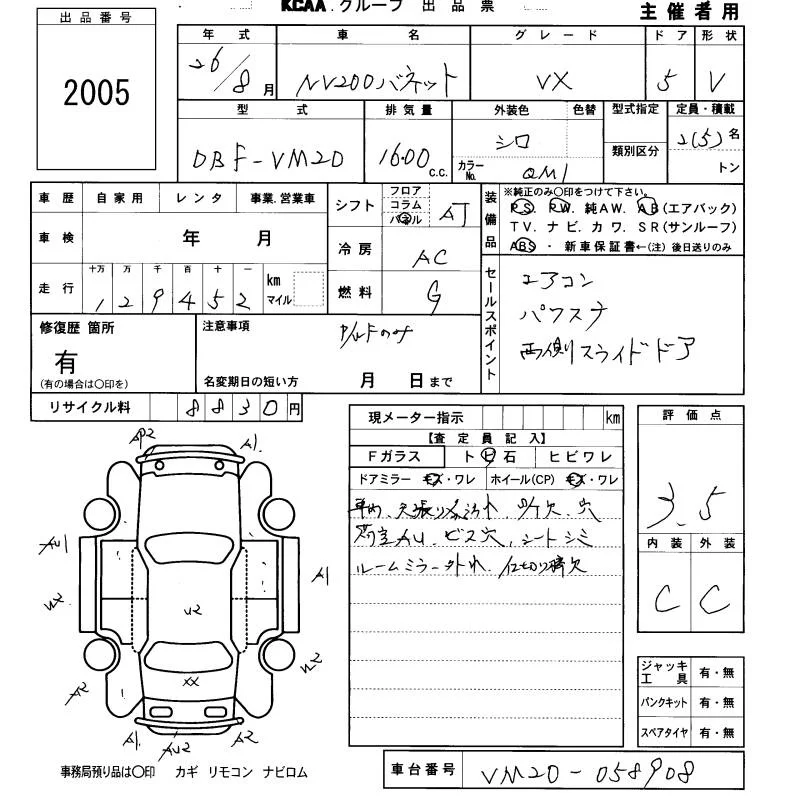 KCAA.グループ 出品票
主催者用
出品番号
2005
年式 車名 グレード ドア 形状
26/8月 NV200バネット VX 5 V
型式 排気量 外装色 色替 型式指定 定員・積載
類別区分
DBF-VM20 1600 c.c. シロ カラーNo. QM1 2(5)名
トン
車歴 自家用 レンタ 事業.営業車
シフト フロア コラム パネル AT
装備品 ※純正のみ〇印をつけて下さい。
PS. PW. 純AW. AB(エアバック)
TV. ナビ. カワ. SR(サンルーフ)
ABS ・ 新車保証書←(注) 後日送りのみ
車検 年 月
冷房 AC
走行 十万 万 千 百 十 一 km マイル
129452
燃料 G
セールスポイント
エアコン
パワステ
両側スライドドア
修復歴 箇所
有
(有の場合は〇印を)
注意事項
P/LFのみ
名変期日の短い方 月 日まで
リサイクル料 8830円
現メーター指示 km
【査定員記入】
Fガラス トビ石 ヒビワレ
ドアミラー キズ・ワレ ホイール(CP) キズ・ワレ
車内、天張り 汚れ 欠、穴
荷室AU、ビス穴、シートシミ
ルームミラー外れ、仕切り棒欠
評価点
3.5
内装 外装
C C
AP2 A1.
AU1 A1
U2 U2 U2
A2 XX
A1. AU2 A2
ジャッキ工具 有・無
パンクキット 有・無
スペアタイヤ 有・無
事務局預り品は〇印 カギ リモコン ナビロム
車台番号 VM20-058908